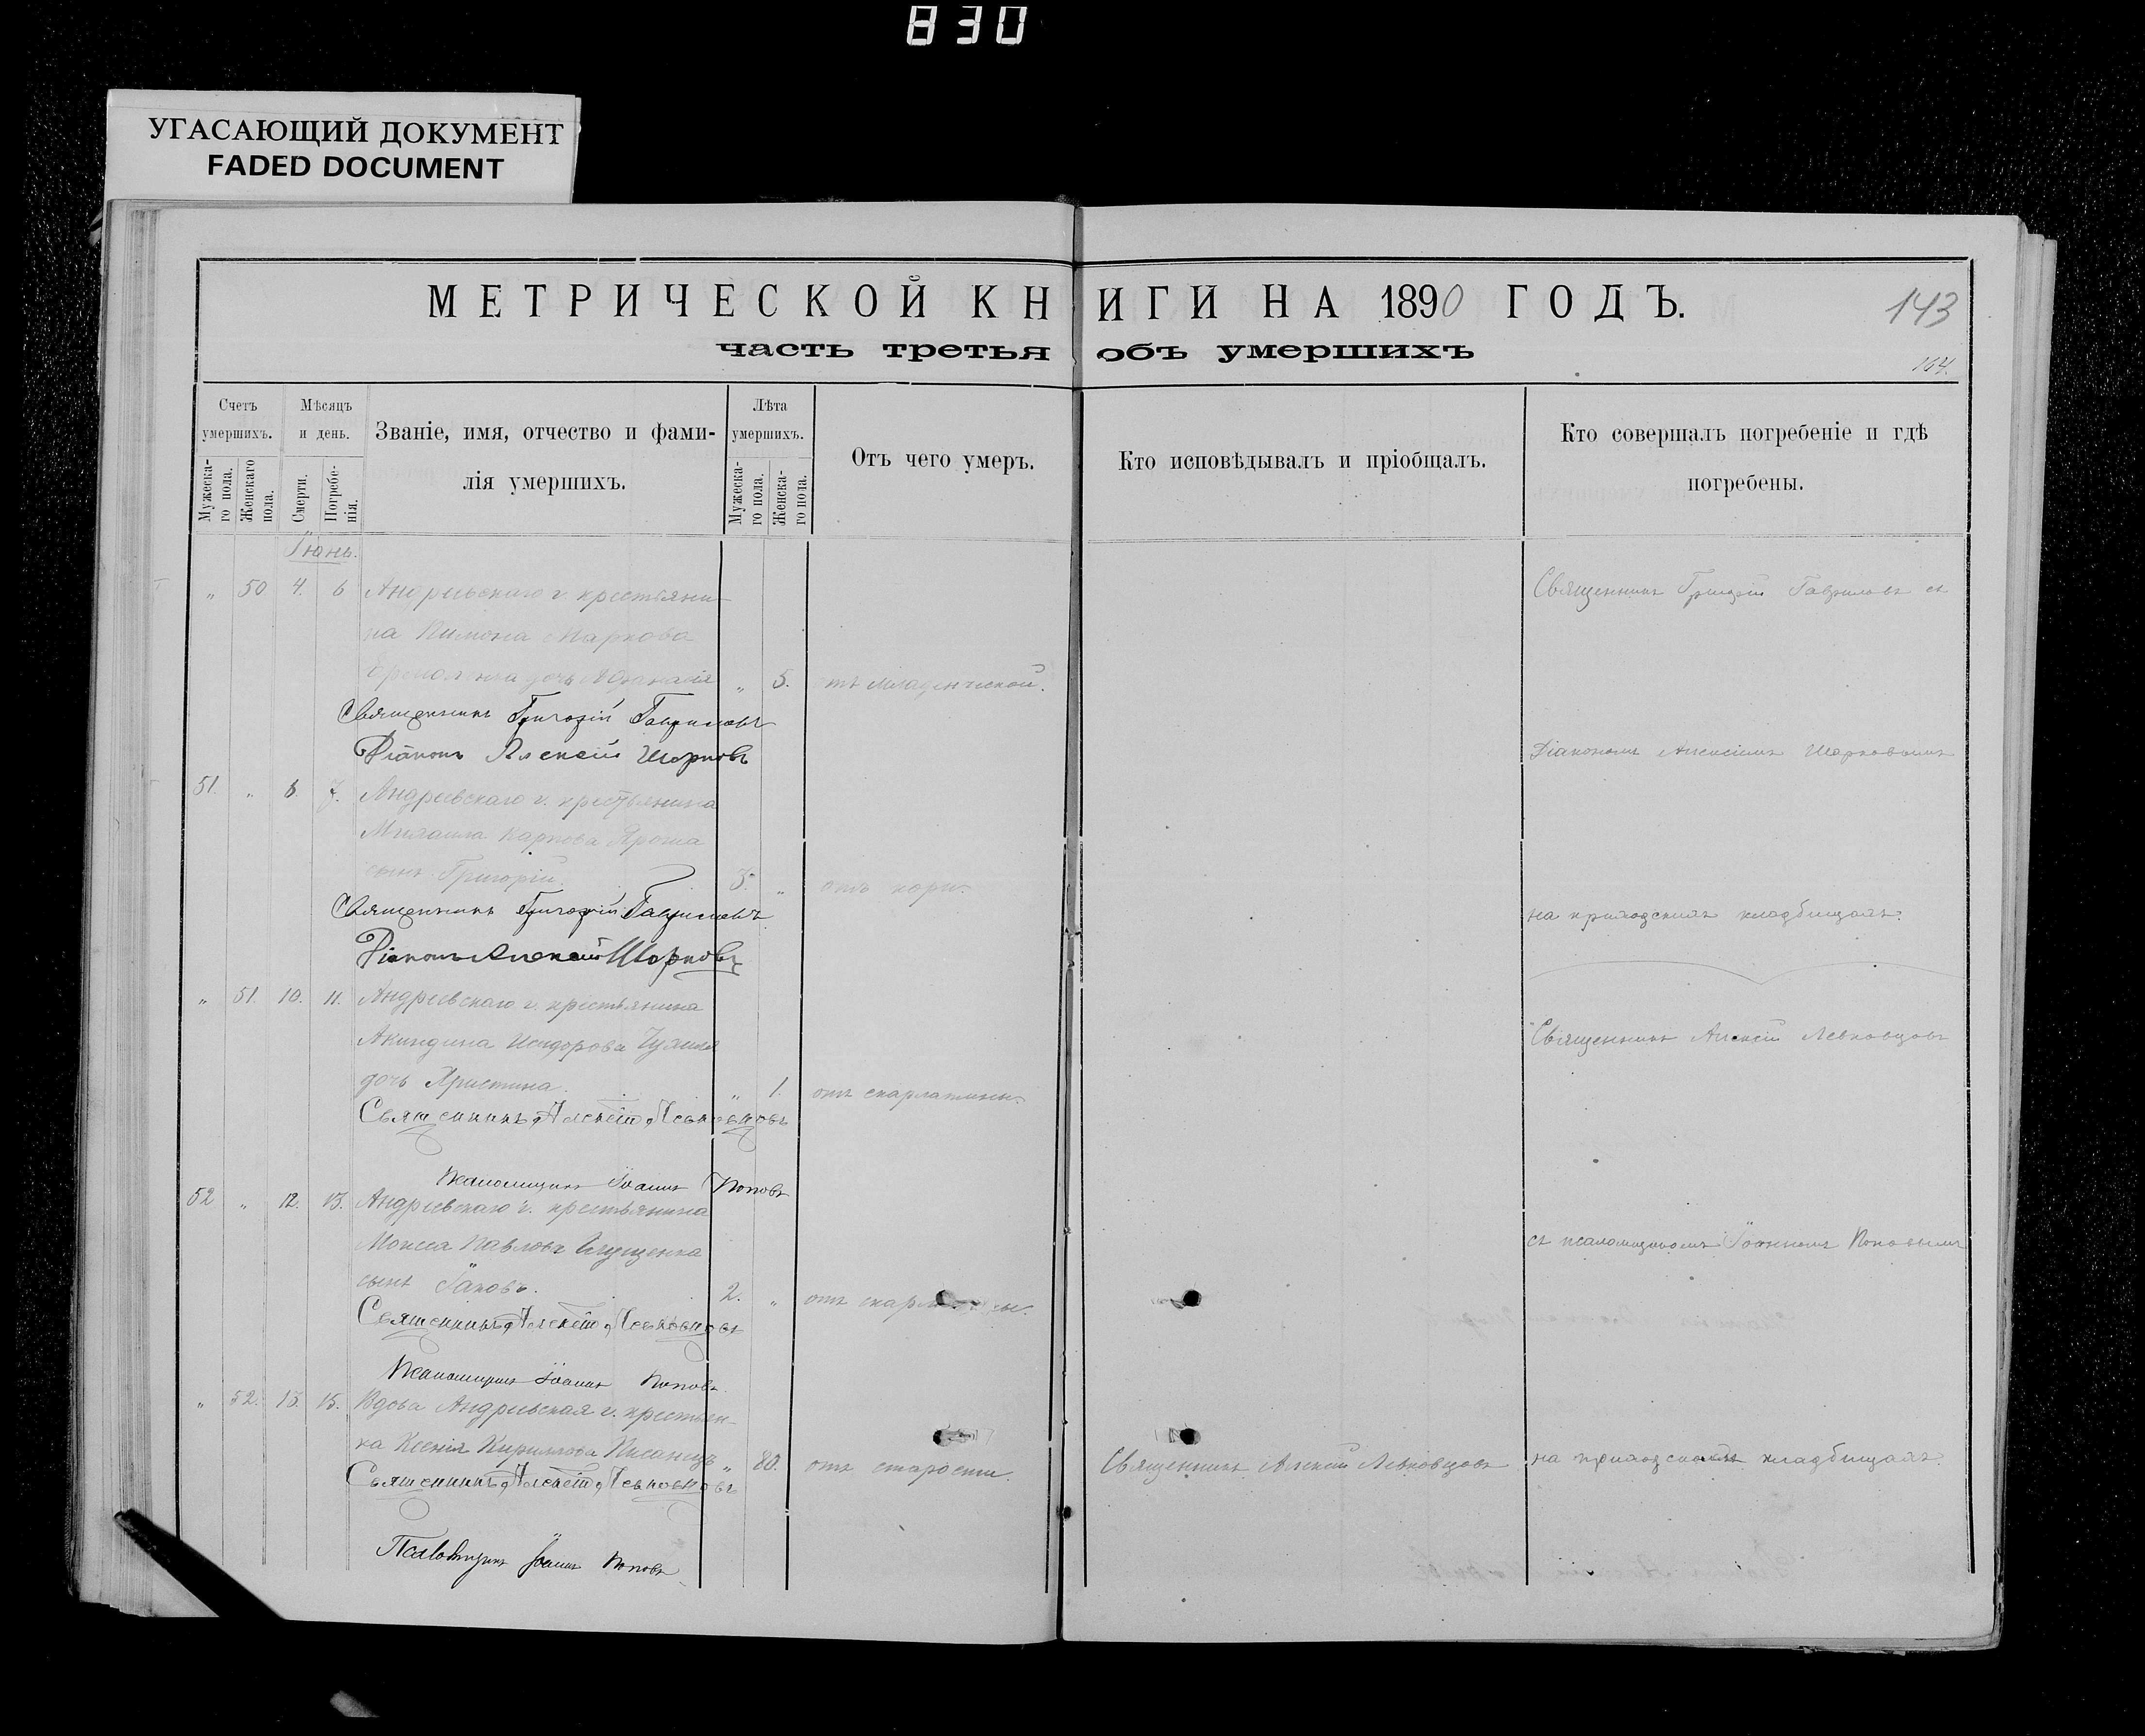 830
УГАСАЮЩИЙ ДОКУМЕНТ
FADED DOCUMENT
МЕТРИЧЕСКОЙ КНИГИ НА 1890 ГОДЪ.
143
часть третья объ умершихъ
164.
Счетъ умершихъ.
Мужеска-го пола.
Женскаго пола.
Мѣсяцъ и день.
Смерти.
Погребе-нія.
Званіе, имя, отчество и фами-
лія умершихъ.
Лѣта умершихъ.
Мужеска-го пола.
Женска-го пола.
Отъ чего умеръ.
Кто исповѣдывалъ и пріобщалъ.
Кто совершалъ погребеніе и гдѣ
погребены.
Іюнь.
„ 50 4. 6 Андреевскаго г. крестьяни-
на Пимона Маркова
дочь Афанасія „ 5. отъ младенческой.
Священникъ Григорій Гавриловъ
Діаконъ Алексій Шорковъ
Священникъ Григорій Гавриловъ съ
Діакономъ Алексіемъ Шорковымъ
51. „ 6. 7. Андреевскаго г. крестьянина
Михаила Карпова Яроша
сынъ Григорій. 3. „ отъ кори.
Священникъ Григорій Гавриловъ
Діаконъ Алексій Шорковъ
на приходскихъ кладбищахъ.
„ 51. 10. 11. Андреевскаго г. крестьянина
Акиндина Исидорова
дочь Христина. „ 1. отъ скарлатины.
Священникъ Алексій Левковцовъ
Псаломщикъ Іоаннъ Поповъ
Священникъ Алексій Левковцовъ
52 „ 12. 13. Андреевскаго г. крестьянина
Моисея Павлова
сынъ Іаковъ. 2. „ отъ скарлатины.
Священникъ Алексій Левковцовъ
Псаломщикъ Іоаннъ Поповъ
съ псаломщикомъ Іоанномъ Поповымъ
„ 52. 13. 15. Вдова Андреевская г. крестьян-
ка Ксенія Кириллова Писанецъ „ 80. отъ старости. Священникъ Алексій Левковцовъ на приходскихъ кладбищахъ.
Священникъ Алексій Левковцовъ
Псаломщикъ Іоаннъ Поповъ